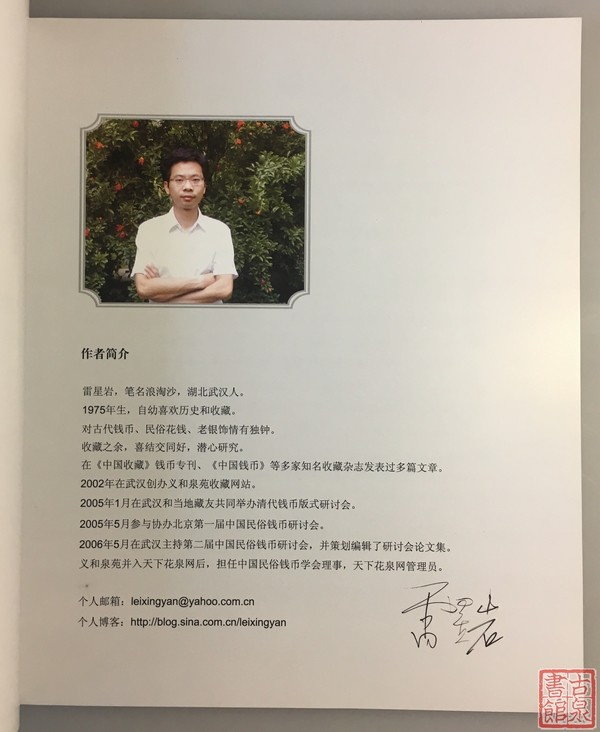 作者简介
雷星岩，笔名浪淘沙，湖北武汉人。
1975年生，自幼喜欢历史和收藏。
对古代钱币、民俗花钱、老银饰情有独钟。
收藏之余，喜结交同好，潜心研究。
在《中国收藏》钱币专刊、《中国钱币》等多家知名收藏杂志发表过多篇文章。
2002年在武汉创办义和泉苑收藏网站。
2005年1月在武汉和当地藏友共同举办清代钱币版式研讨会。
2005年5月参与协办北京第一届中国民俗钱币研讨会。
2006年5月在武汉主持第二届中国民俗钱币研讨会，并策划编辑了研讨会论文集。
义和泉苑并入天下花泉网后，担任中国民俗钱币学会理事，天下花泉网管理员。
个人邮箱：leixingyan@yahoo.com.cn
个人博客：http://blog.sina.com.cn/leixingyan
雷星岩
古泉
書館